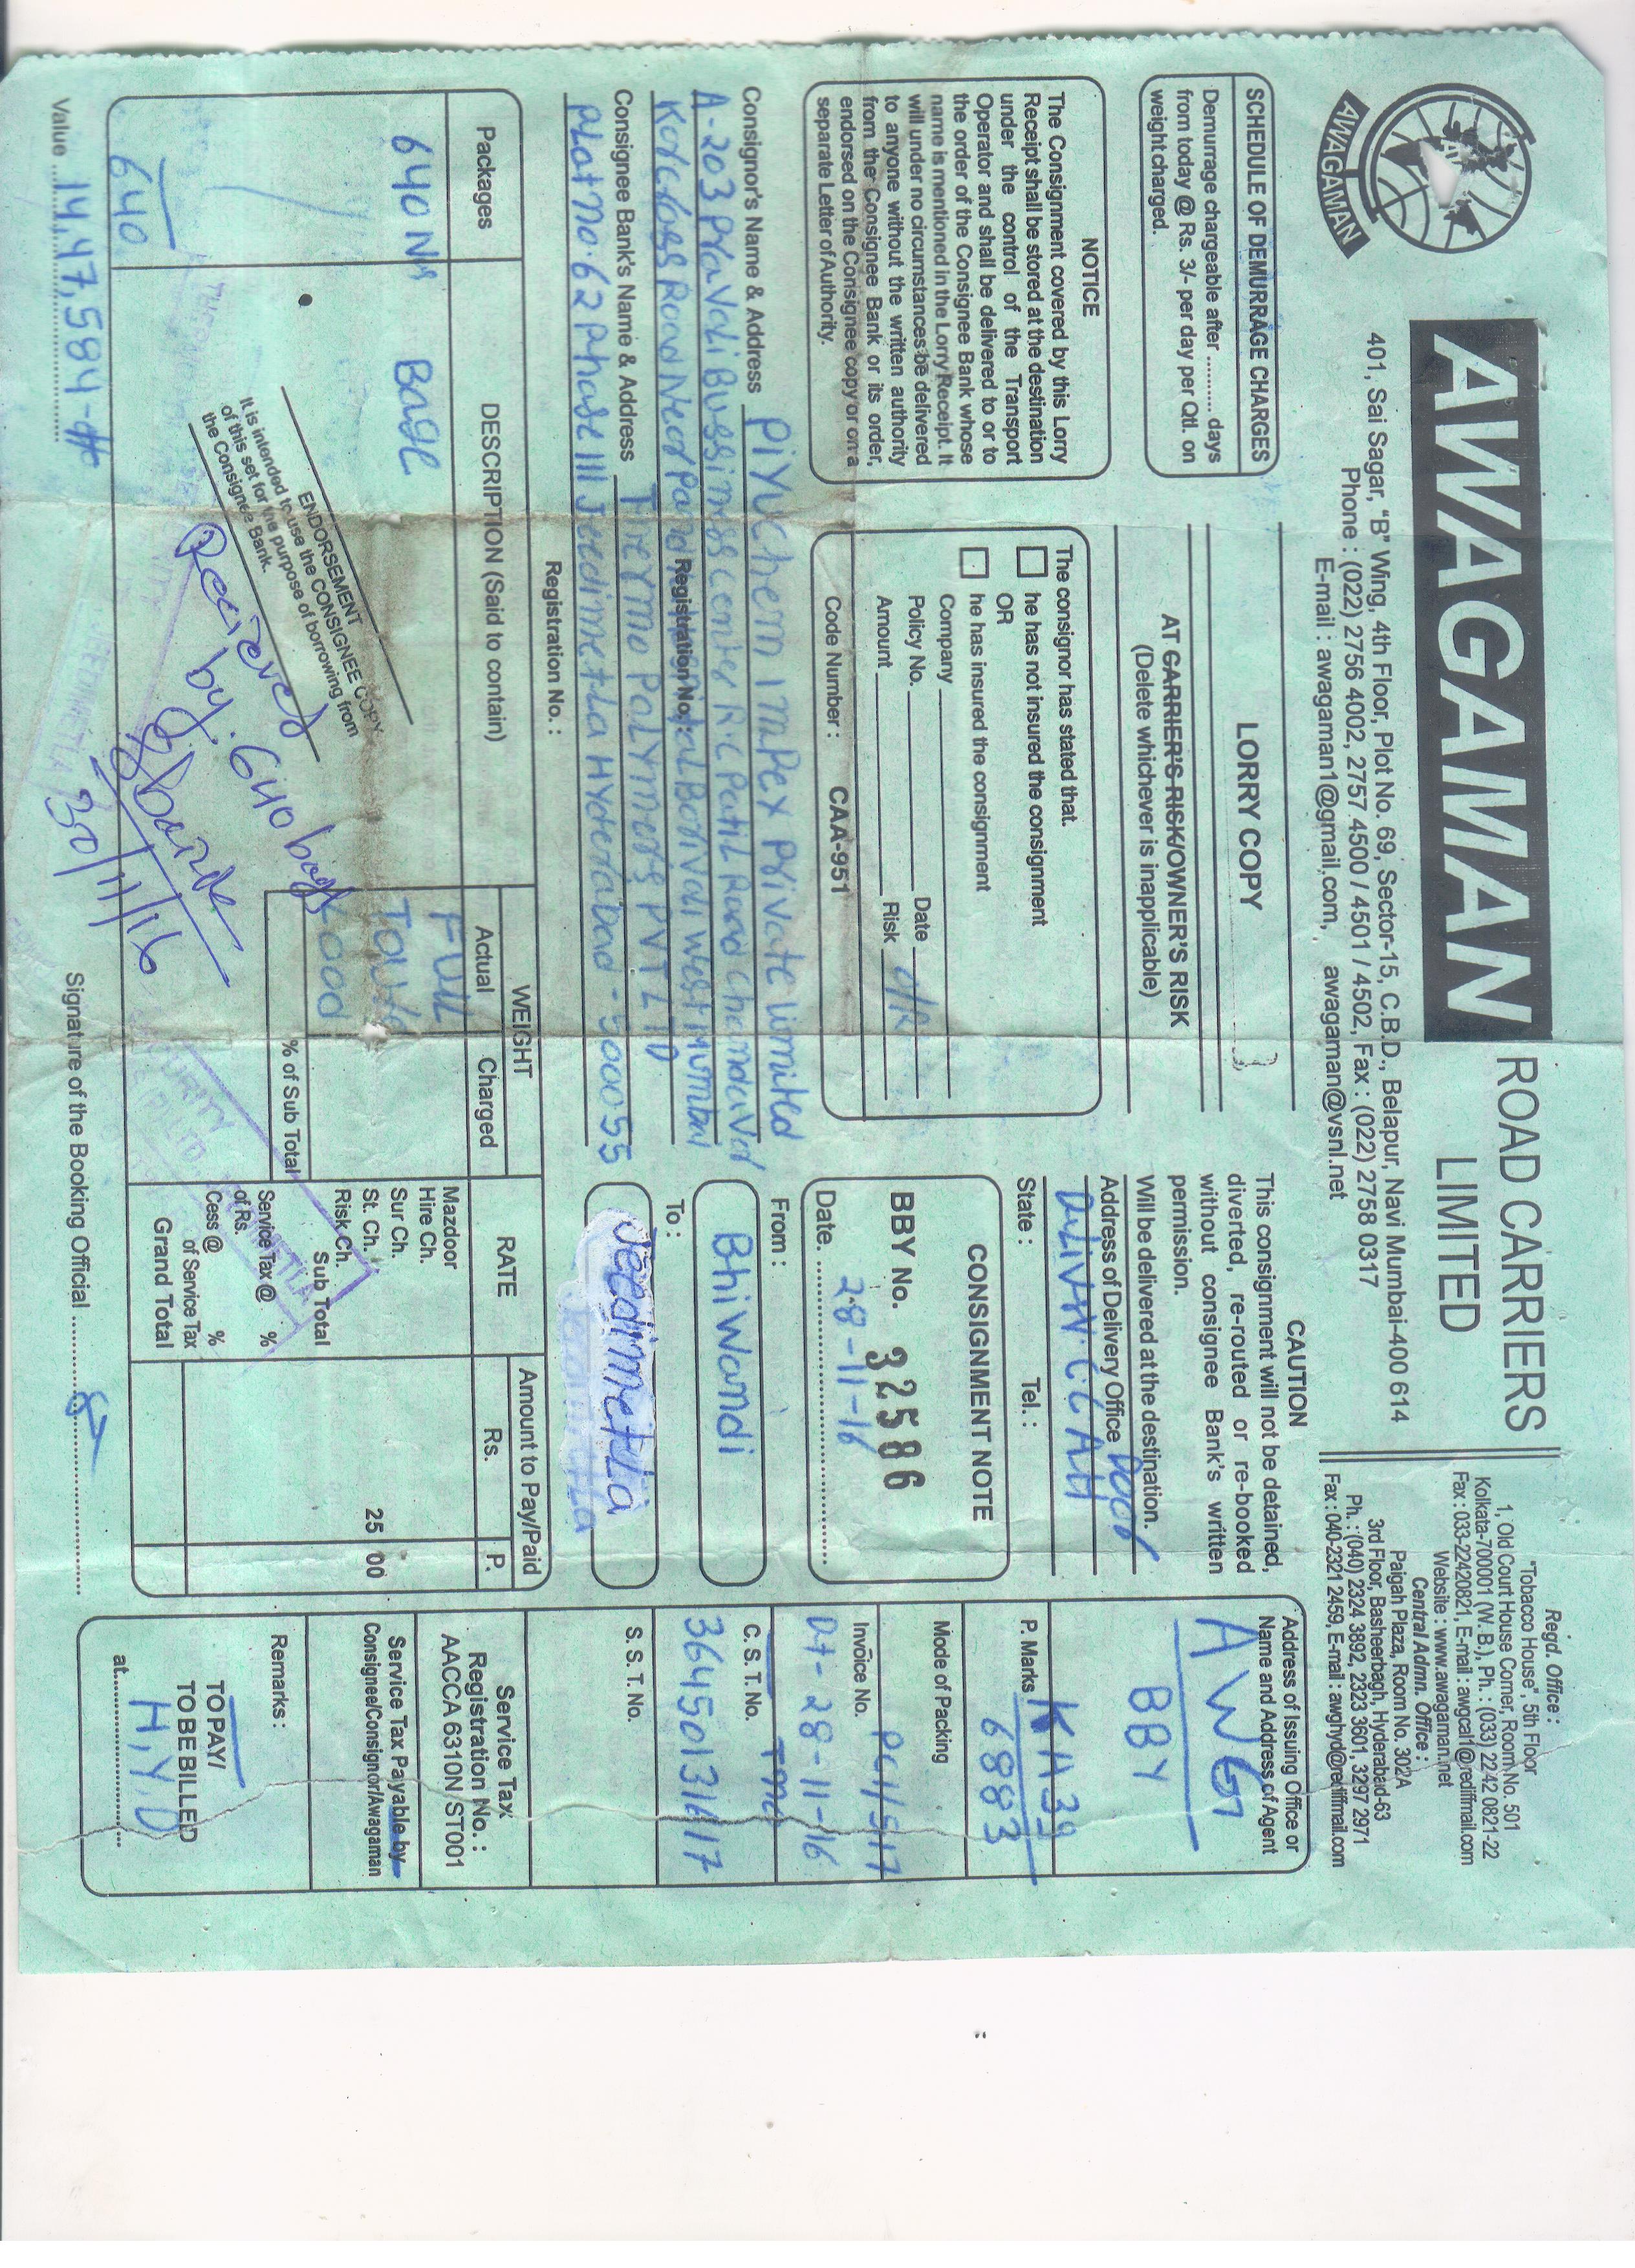 AWAGAMAN
AWAGAMAN
ROAD CARRIERS
LIMITED
401, Sai Sagar, "B" Wing, 4th Floor, Plot No. 69, Sector-15, C.B.D., Belapur, Navi Mumbai-400 614
Phone : (022) 2756 4002, 2757 4500 / 4501 / 4502, Fax : (022) 2758 0317
E-mail : awagaman1@gmail.com, awagaman@vsnl.net
Regd. Office :
"Tobacco House", 5th Floor
1, Old Court House Corner, Room No. 501
Kolkata-700001 (W.B.), Ph. : (033) 2242 0821-22
Fax : 033-22420821, E-mail : awgcal1@rediffmail.com
Website : www.awagaman.net
Central Admn. Office :
Paigah Plaza, Room No. 302A
3rd Floor, Basheerbagh, Hyderabad-63
Ph. : (040) 2324 3892, 2323 3601, 3297 2971
Fax : 040-2321 2459, E-mail : awghyd@rediffmail.com
SCHEDULE OF DEMURRAGE CHARGES
Demurrage chargeable after .......... days
from today @ Rs. 3/- per day per Qtl. on
weight charged.
NOTICE
The Consignment covered by this Lorry
Receipt shall be stored at the destination
under the control of the Transport
Operator and shall be delivered to or to
the order of the Consignee Bank whose
name is mentioned in the Lorry Receipt. It
will under no circumstances be delivered
to anyone without the written authority
from the Consignee Bank or its order,
endorsed on the Consignee copy or on a
separate Letter of Authority.
LORRY COPY
AT CARRIER'S RISK/OWNER'S RISK
(Delete whichever is inapplicable)
The consignor has stated that.
he has not insured the consignment
OR
he has insured the consignment
Company
Policy No. Date
Amount Risk o/R
Code Number : CAA-951
CAUTION
This consignment will not be detained,
diverted, re-routed or re-booked
without consignee Bank's written
permission.
Will be delivered at the destination.
Address of Delivery Office Door
State : Tel. :
CONSIGNMENT NOTE
BBY No. 32586
Date. 28-11-16
From :
Bhiwandi
To :
Jeedimetla
Address of Issuing Office or
Name and Address of Agent
AWG
BBY
P. Marks KA39
6883
Mode of Packing
Invoice No. PCI/517
Dt- 28-11-16
C. S. T. No.
36450131617
S. S. T. No.
Service Tax
Registration No. :
AACCA 6310N ST001
Service Tax Payable by
Consignee/Consignor/Awagaman
Remarks :
TO PAY/
TO BE BILLED
at H,Y,D
Consignor's Name & Address PiYuchem ImPex Private limited
A-203 PraVali Bussiness Center R.C Patil Road Chandavar
Registration No.
Consignee Bank's Name & Address Thermo PoLYmers PVT LTD
PLot no.62 phase III Jeedimetla Hyderabad - 500055
Registration No. :
Packages
DESCRIPTION (Said to contain)
WEIGHT
Actual
Charged
RATE
Amount to Pay/Paid
Rs.
P.
640 Ns Bags
FULL
Load
Mazdoor
Hire Ch.
Sur Ch.
St. Ch. 25 00
Risk Ch.
Sub Total
% of Sub Total
Service Tax @ %
of Rs.
Cess @ %
of Service Tax
Grand Total
ENDORSEMENT
It is intended to use the CONSIGNEE COPY
of this set for the purpose of borrowing from
the Consignee Bank.
Recived
by. 640 bags
30/11/16
640
Value 14,47,584
Signature of the Booking Official